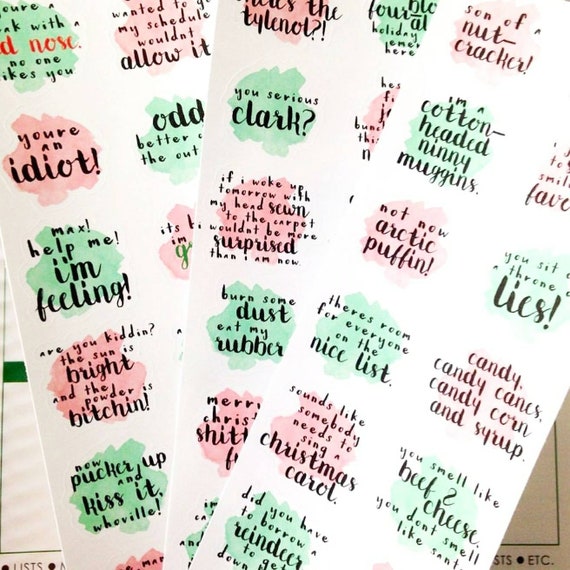 youre a
with a
d nose.
no one
likes you
wanted to g
my schedule
wouldnt
allow it
youre
an
idiot!
odd
better
the out
max!
help me!
i'm
feeling!
its
im
are you kiddin?
the sun is
bright
and the
powder is
bitchin!
now
pucker up
and
kiss it,
whoville!
the
tylenol?!
four
holiday
here
you serious
clark?
if i woke up
tomorrow with
my head sewn
to the carpet
i wouldnt be more
surprised
than i am now.
burn some
dust
eat my
rubber
merr
chris
shitt
f
son of a
nut-
cracker!
im a
cotton-
headed
ninny
muggins.
not now
arctic
puffin!
you sit o
a throne o
lies!
theres room
for everyone
on the
nice list.
candy,
candy canes,
candy corn
and syrup.
sounds like
somebody
needs to
sing a
christmas
carol.
you smell like
beef &
cheese.
you dont smell
like sant
did you have
to borrow a
reindeer
to get
down
LISTS
STS ● ETC.